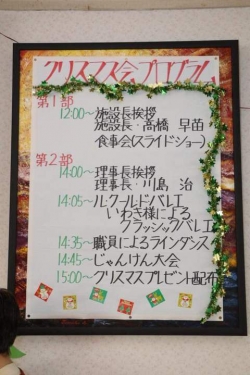 クリスマス会プログラム
第1部
12:00~施設長挨拶
施設長・髙橋 早苗
食事会(スライドショー)
第2部
14:00~理事長挨拶
理事長・川島 治
14:05~ル・クールドバレエ
いわき様による
クラッシックバレエ
14:35~職員によるラインダンス
14:45~じゃんけん大会
15:00~クリスマスプレゼント配布